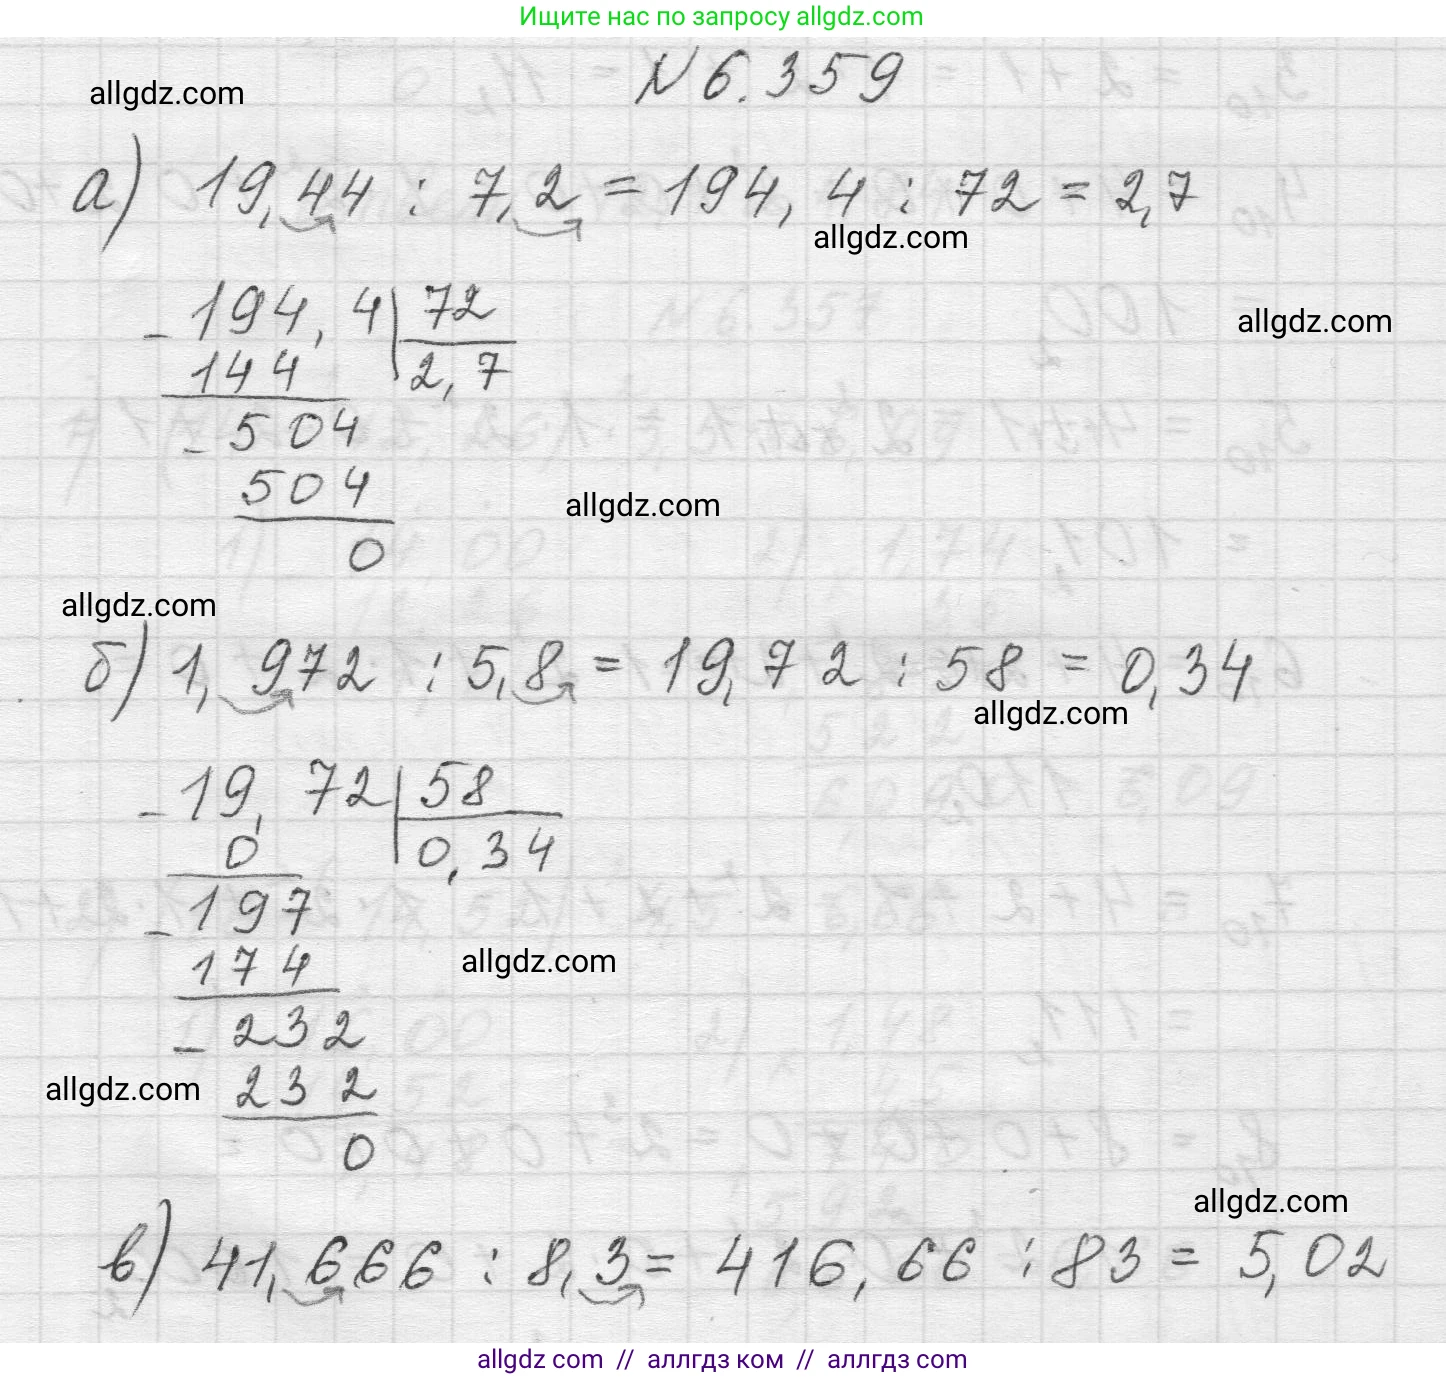 Ищите нас по запросу allgdz.com
№ 6.359
allgdz.com
а) 19,44 : 7,2 = 194,4 : 72 = 2,7
allgdz.com
- 194,4 | 72
allgdz.com
144 2,7
- 504
504
allgdz.com
0
allgdz.com
б) 1,972 : 5,8 = 19,72 : 58 = 0,34
allgdz.com
- 19,72 | 58
0 0,34
- 197
174
allgdz.com
- 232
232
allgdz.com
0
allgdz.com
в) 41,666 : 8,3 = 416,66 : 83 = 5,02
allgdz com // аллгдз ком // аллгдз com